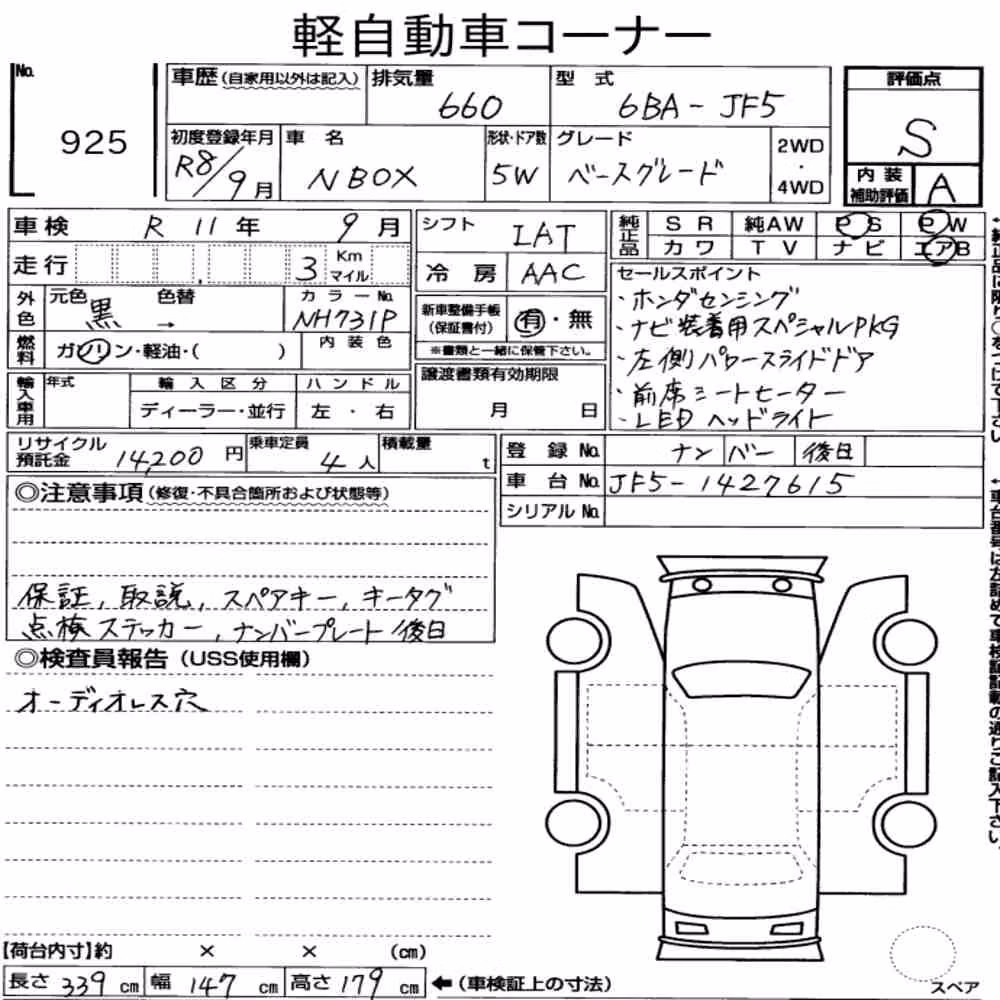 軽自動車コーナー
No. 925
車歴(自家用以外は記入) 排気量 660 型式 6BA-JF5
初度登録年月 R8/9月 車名 NBOX 形状・ドア数 5W グレード ベースグレード 2WD・4WD
評価点 S
内装補助評価 A
車検 R 11年 9月
走行 3 Km マイル
外色 元色 黒 → 色替 カラーNo. NH731P
燃料 ガソリン・軽油・( ) 内装色
輸入車用 年式 輸入区分 ディーラー・並行 ハンドル 左・右
シフト IAT
冷房 AAC
新車整備手帳(保証書付) 有・無
※書類と一緒に保管下さい。
譲渡書類有効期限 月 日
純正品 SR 純AW PS PW
カワ TV ナビ エアB
セールスポイント
・ホンダセンシング
・ナビ装着用スペシャルPKG
・左側パワースライドドア
・前席シートヒーター
・LEDヘッドライト
リサイクル預託金 14,200円 乗車定員 4人 積載量 t
登録No. ナンバー後日
車台No. JF5-1427615
シリアルNo.
◎注意事項(修復・不具合箇所および状態等)
保証, 取説, スペアキー, キータグ
点検ステッカー, ナンバープレート後日
◎検査員報告(USS使用欄)
オーディオレス穴
【荷台内寸】約 × × (cm)
長さ 339 cm 幅 147 cm 高さ 179 cm ←(車検証上の寸法)
スペア